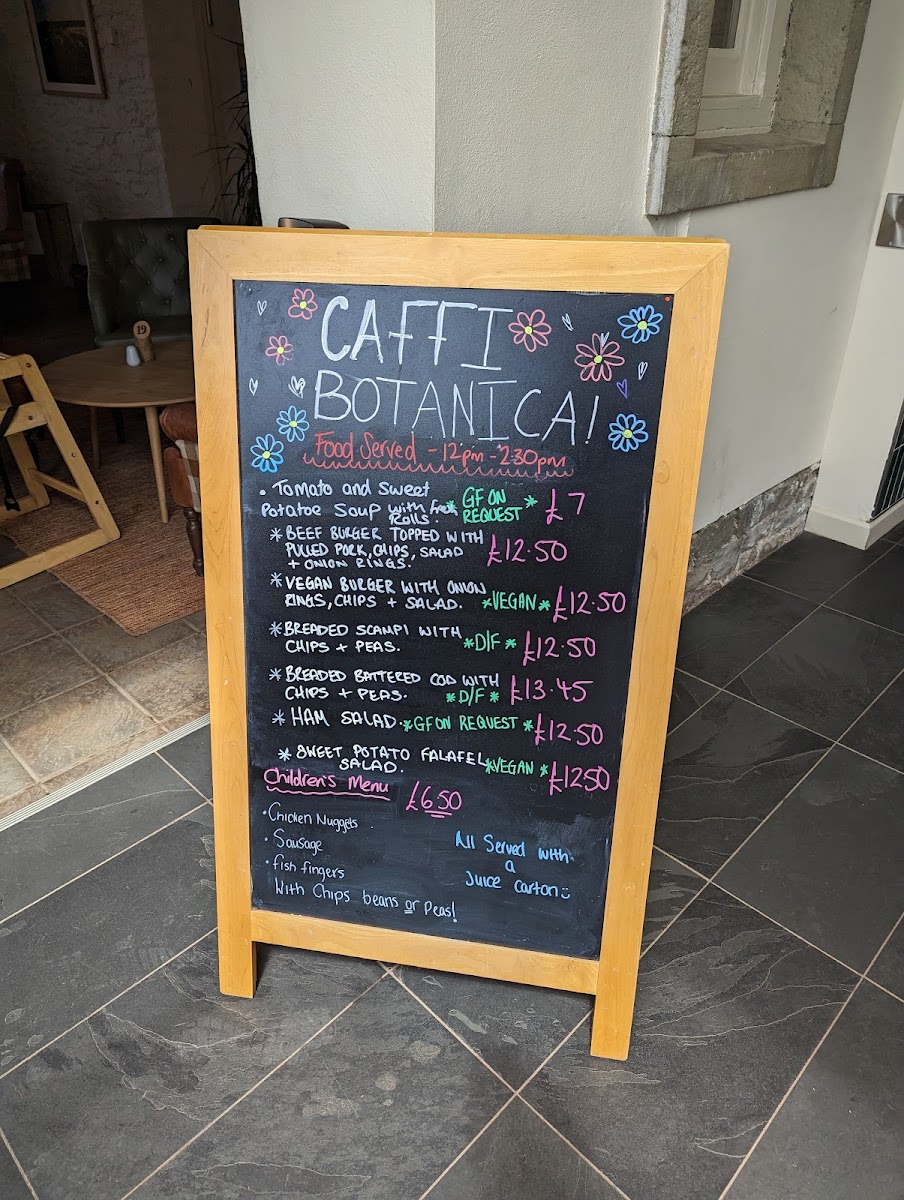 19
CAFFI
BOTANICA!
Food Served - 12pm - 2:30pm
• Tomato and Sweet
Potatoe Soup with
Rolls. * GF ON REQUEST * £7
* BEEF BURGER TOPPED WITH
PULLED PORK, CHIPS, SALAD
+ ONION RINGS. £12.50
* VEGAN BURGER WITH ONION
RINGS, CHIPS + SALAD. *VEGAN* £12.50
* BREADED SCAMPI WITH
CHIPS + PEAS. *D/F* £12.50
* BREADED BATTERED COD WITH
CHIPS + PEAS. *D/F* £13.45
* HAM SALAD. *GF ON REQUEST* £12.50
* SWEET POTATO FALAFEL
SALAD. *VEGAN* £1250
Children's Menu £6.50
• Chicken Nuggets
• Sausage
• fish fingers
With Chips beans or Peas!
All Served with
a
Juice carton